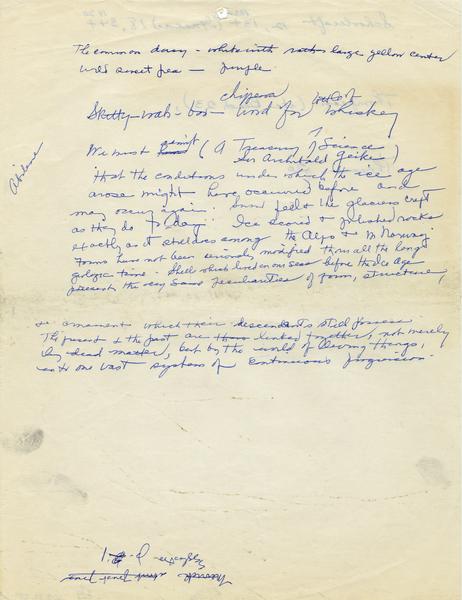 The common daisy - white with rather large yellow center
wild sweet pea - purple
chippewa bottle of
Skitty-wah-boo- word for whiskey
We must admit (A Treasury of Science
Sir Archibald Geikie)
that the conditions under which the ice age
arose might have occurred before and
may occur again. Snow fell & the glaciers crept
as they do today. Ice scored & polished rocks
exactly as it still does among the Alps & in Norway.
Forms have not been seriously modified thru all the long
geologic time. Shells which lived in our seas before the Ice age
present the very same peculiarities of form, structure,
or ornament which their descendants still possess.
The present & the past are linked together, not merely
by dead matter, but by the world of living things,
into one vast system of continuous progression.